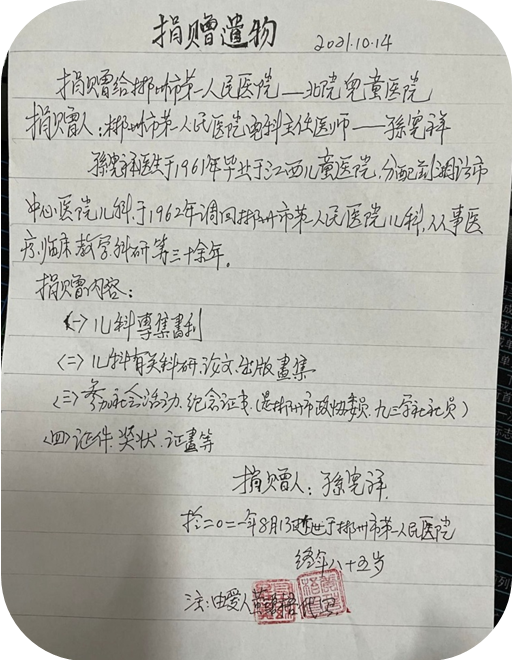 捐赠遗物 2021.10.14
捐赠给郴州市第一人民医院——北院儿童医院
捐赠人:郴州市第一人民医院儿科主任医师——孫憲祥
孫憲祥医生于1961年毕业于江西儿童医院,分配到湘潭市
中心医院儿科,于1962年调回郴州市第一人民医院儿科,从事医
疗.临床.教学.科研等三十余年。
捐赠内容:
(一)儿科專集書刊
(二)儿科有关科研.论文.出版畫集
(三)参加社会活动.纪念证书.(是郴州市政协委員.九三学社社员)
(四)证件.奖状.证書等
捐赠人:孫憲祥.
於二〇二一年8月13日逝世于郴州市第一人民医院
终年八十五岁
注:由爱人